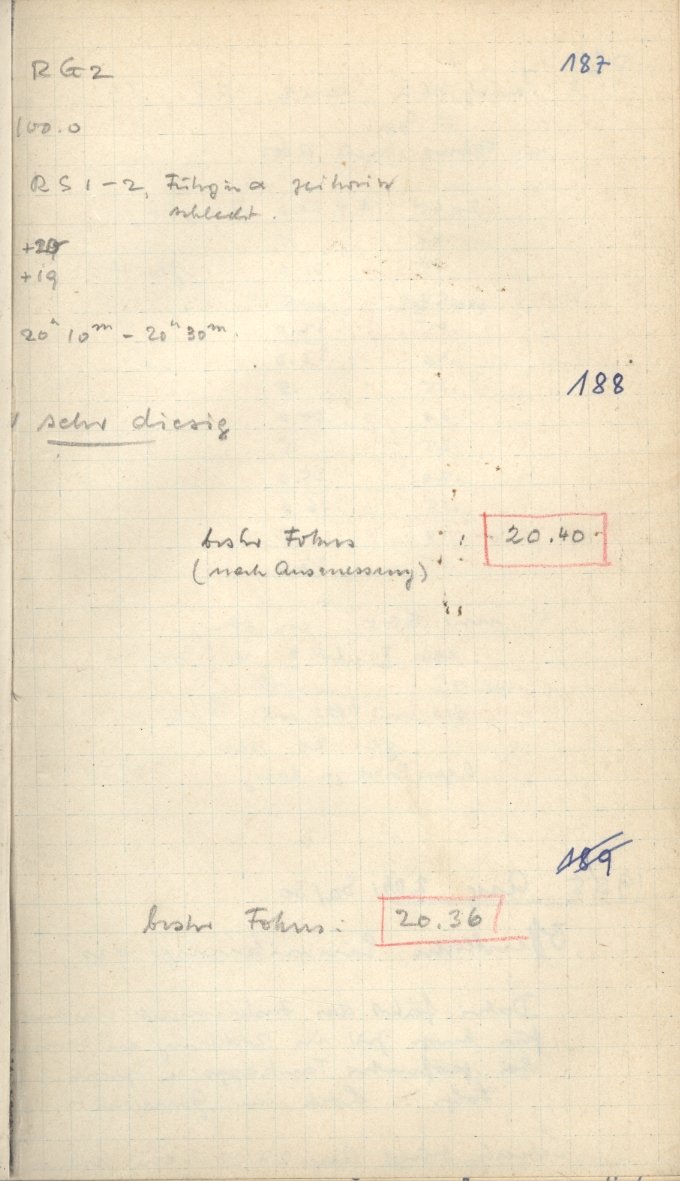 187
RG2
100.0
RS 1-2, Führg in α zeitweise
schlecht.
+19
20ʰ 10ᵐ - 20ʰ 30ᵐ.
188
sehr diesig
bester Fokus : 20.40
(nach Ausmessung)
189
bester Fokus: 20.36